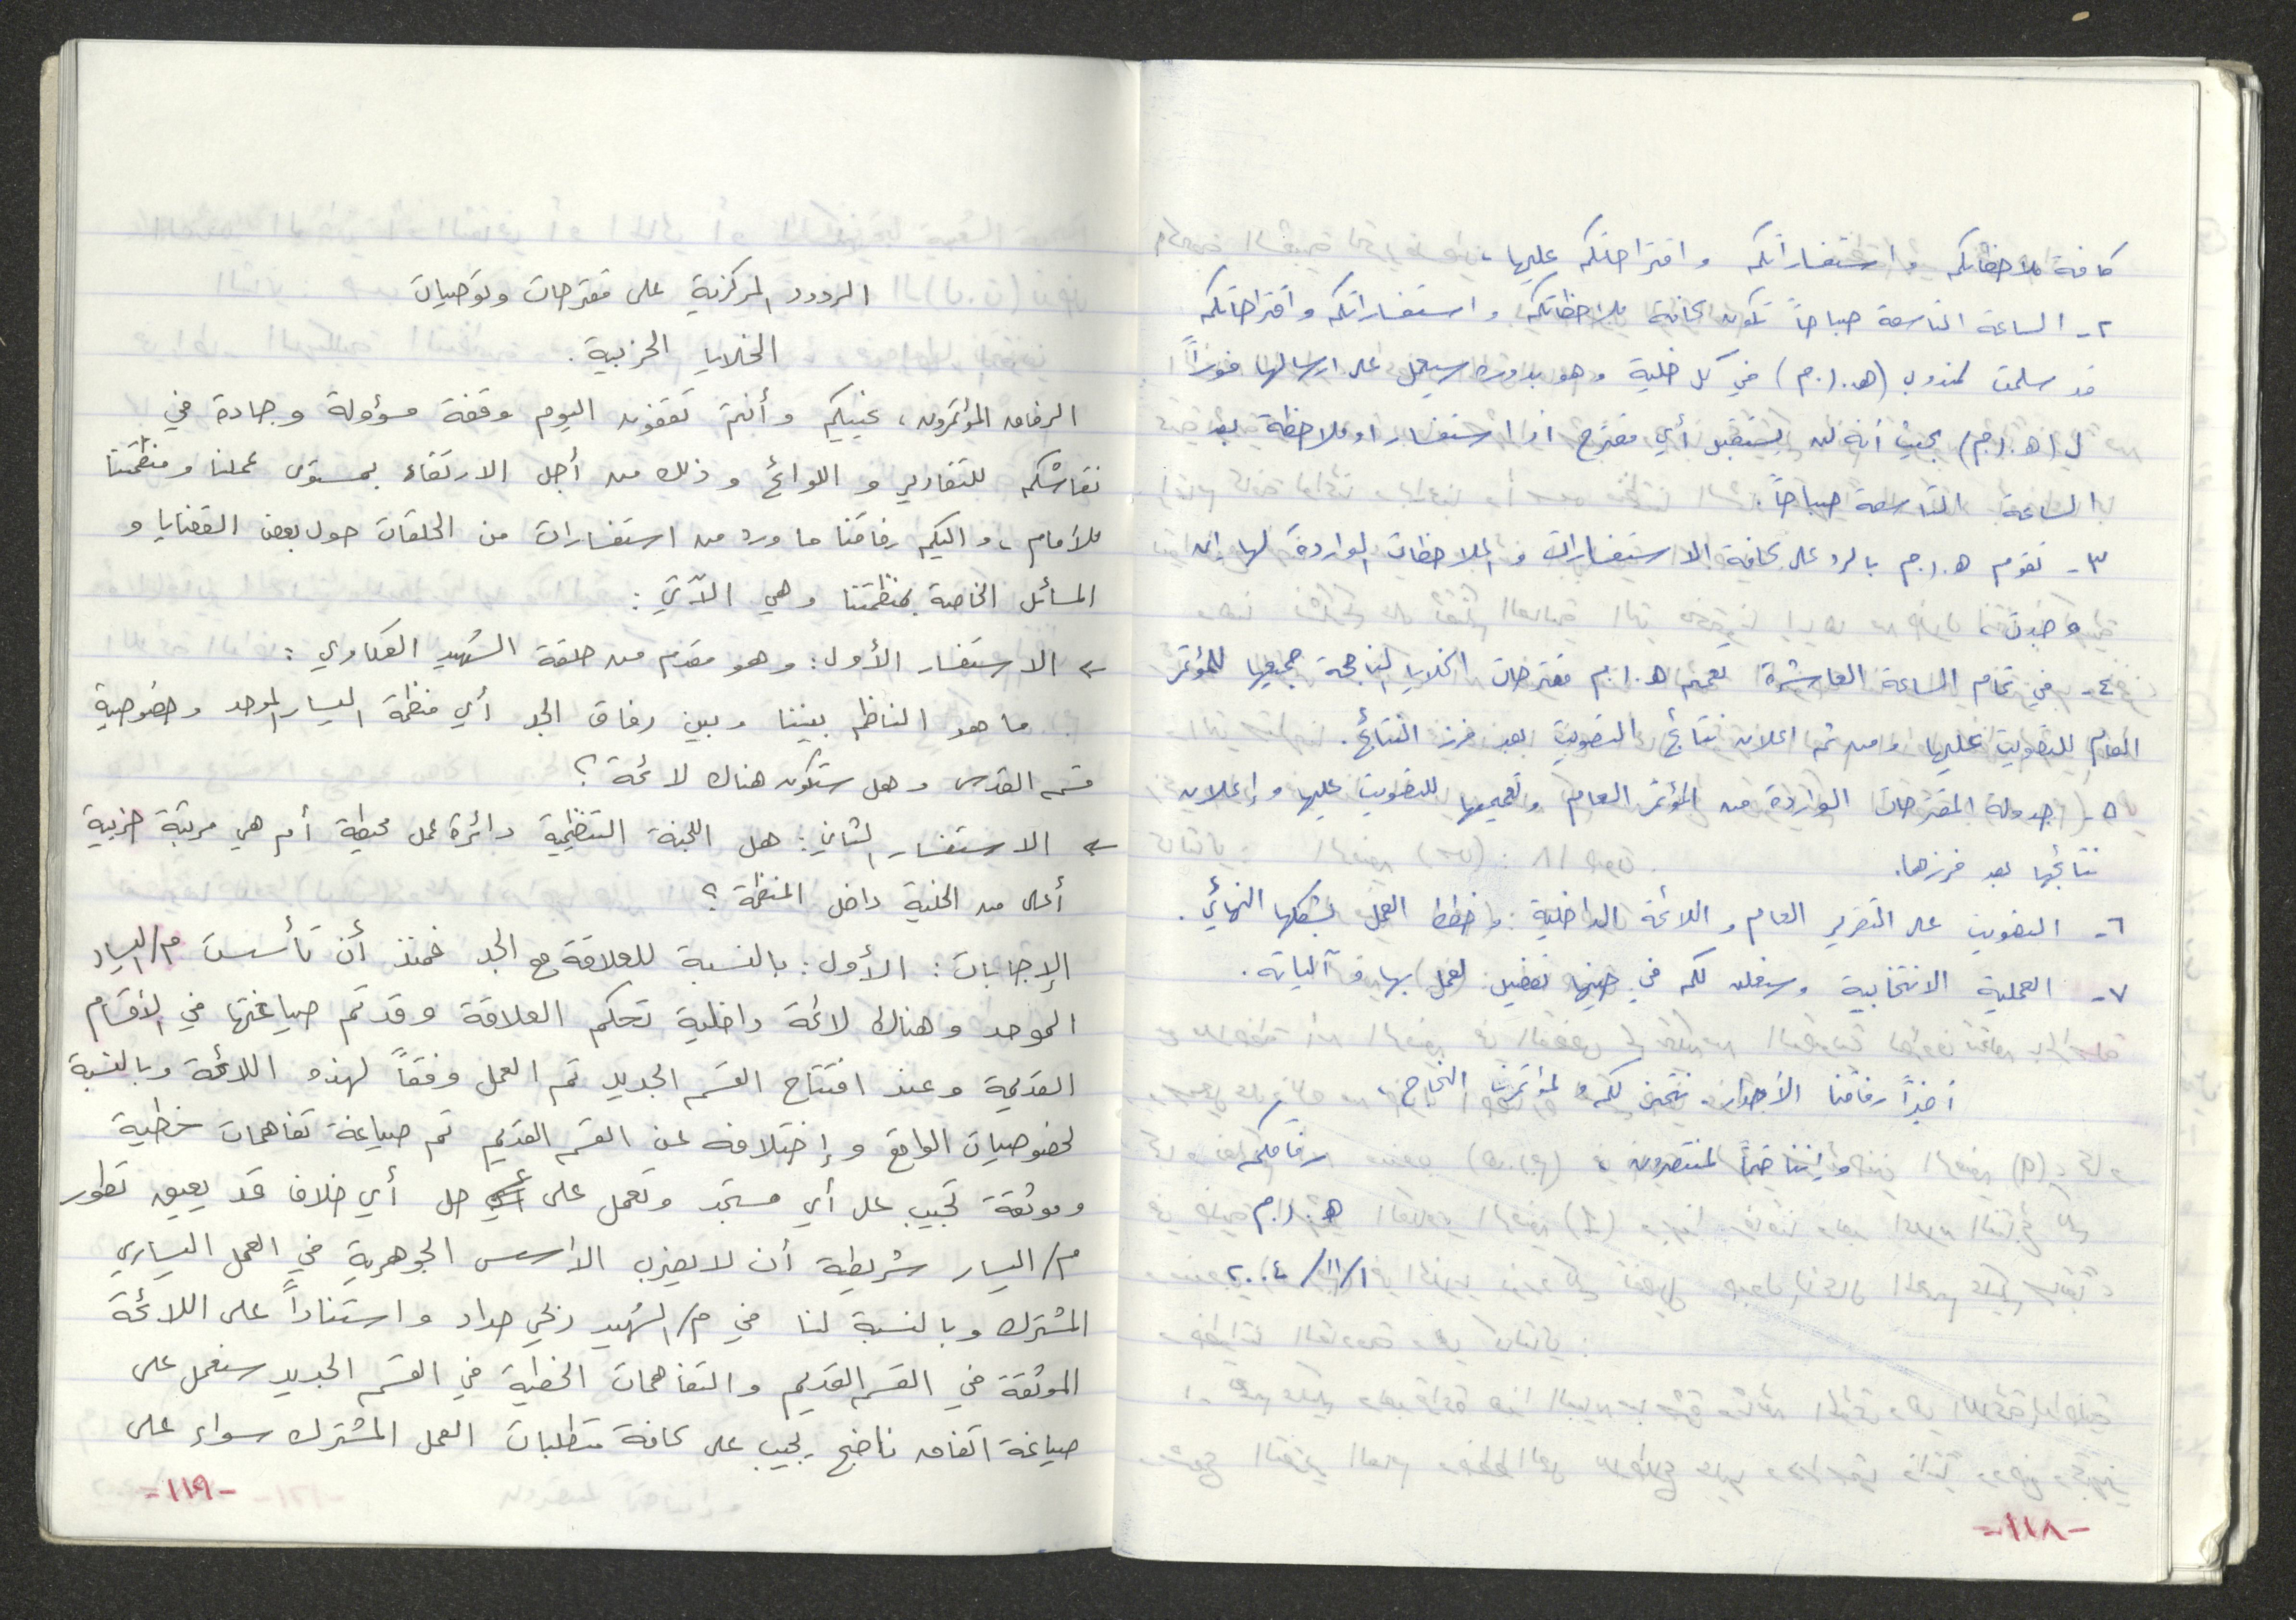 كافة ملاحظاتكم واستفساراتكم واقتراحاتكم عليها.
٢- الساعة التاسعة صباحاً تكون كافة ملاحظاتكم واستفساراتكم واقتراحاتكم
قد سلمت لمندوب (هـ.ا.م) في كل خلية وهو بدوره سيعمل على ارسالها فوراً
ل (هـ.ا.م) بحيث أنه لن يستقبل أي مقترح او استفسار او ملاحظة بعد
الساعة التاسعة صباحاً.
٣- تقوم هـ.ا.م بالرد على كافة الاستفسارات و الملاحظات الواردة لها إن
وجدت.
٤- في تمام الساعة العاشرة تعمم هـ.ا.م مقترحات الخلايا الناجحة جميعها للمؤتمر
العام للتصويت عليها ومن ثم اعلان نتائج التصويت بعد فرز النتائج.
٥- جدولة المقترحات الواردة من المؤتمر العام وتعميمها للتصويت عليها وإعلان
نتائجها بعد فرزها.
٦- التصويت على التقرير العام و اللائحة الداخلية وخطط العمل بشكلها النهائي.
٧- العملية الانتخابية وسنعلن لكم في حينها تفصيل العمل بها و آلياته.
أخيراً رفاقنا الأحرار نتمنى لكم و لمؤتمرنا النجاح،
وإننا حتماً لمنتصرون،
رفاقكم
هـ.ا.م
١/١١/٢٠٠٤
-١١٨-
الردود المركزية على مقترحات وتوصيات
الخلايا الحزبية.
الرفاق المؤتمرون، نحييكم وأنتم تقفون اليوم وقفة مسؤولة وجادة في
نقاشكم للتقارير و اللوائح و ذلك من أجل الارتقاء بمستوى عملنا ومنظمتنا
للأمام، واليكم رفاقنا ما ورد من استفسارات من الحلقات حول بعض القضايا و
المسائل الخاصة بمنظمتنا وهي الآتي:
← الاستفسار الأول: وهو مقدم من حلقة الشهيد العكاوي:
ما هو الناظم بيننا وبين رفاق الجد أي منظمة اليسار الموحد وخصوصية
قسم القدس وهل ستكون هناك لائحة؟
← الاستفسار الثاني: هل اللجنة التنظيمية دائرة عمل محيطة أم هي مرتبة حزبية
أعلى من الخلية داخل المنظمة؟
الإجابات: الأول: بالنسبة للعلاقة مع الجد فمنذ أن تأسست م/اليسار
الموحد وهناك لائحة داخلية تحكم العلاقة وقد تم صياغتها في الأقسام
القديمة وعند افتتاح القسم الجديد تم العمل وفقاً لهذه اللائحة وبالنسبة
لخصوصيات الواقع و إختلافه عن القسم القديم تم صياغة تفاهمات خطية
وموثقة تجيب على أي مستجد وتعمل على حل أي خلاف قد يعيق تطور
م/اليسار شريطة أن لا يضرب الاسس الجوهرية في العمل اليساري
المشترك وبالنسبة لنا في م/الشهيد داخل حداد واستناداً على اللائحة
الموثقة في القسم القديم والتفاهمات الخطية في القسم الجديد سنعمل على
صياغة اتفاق ناضج يجيب على كافة متطلبات العمل المشترك سواء على
-١١٩-